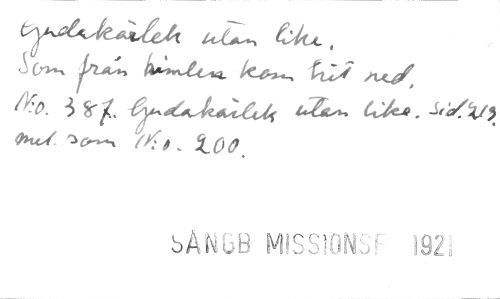 Gudakärlek utan like,
Som från himlen kom hit ned.
N:o. 387. Gudakärlek utan like. sid. 219.
mel. som N:o. 200.
SANGB MISSIONSF 1921